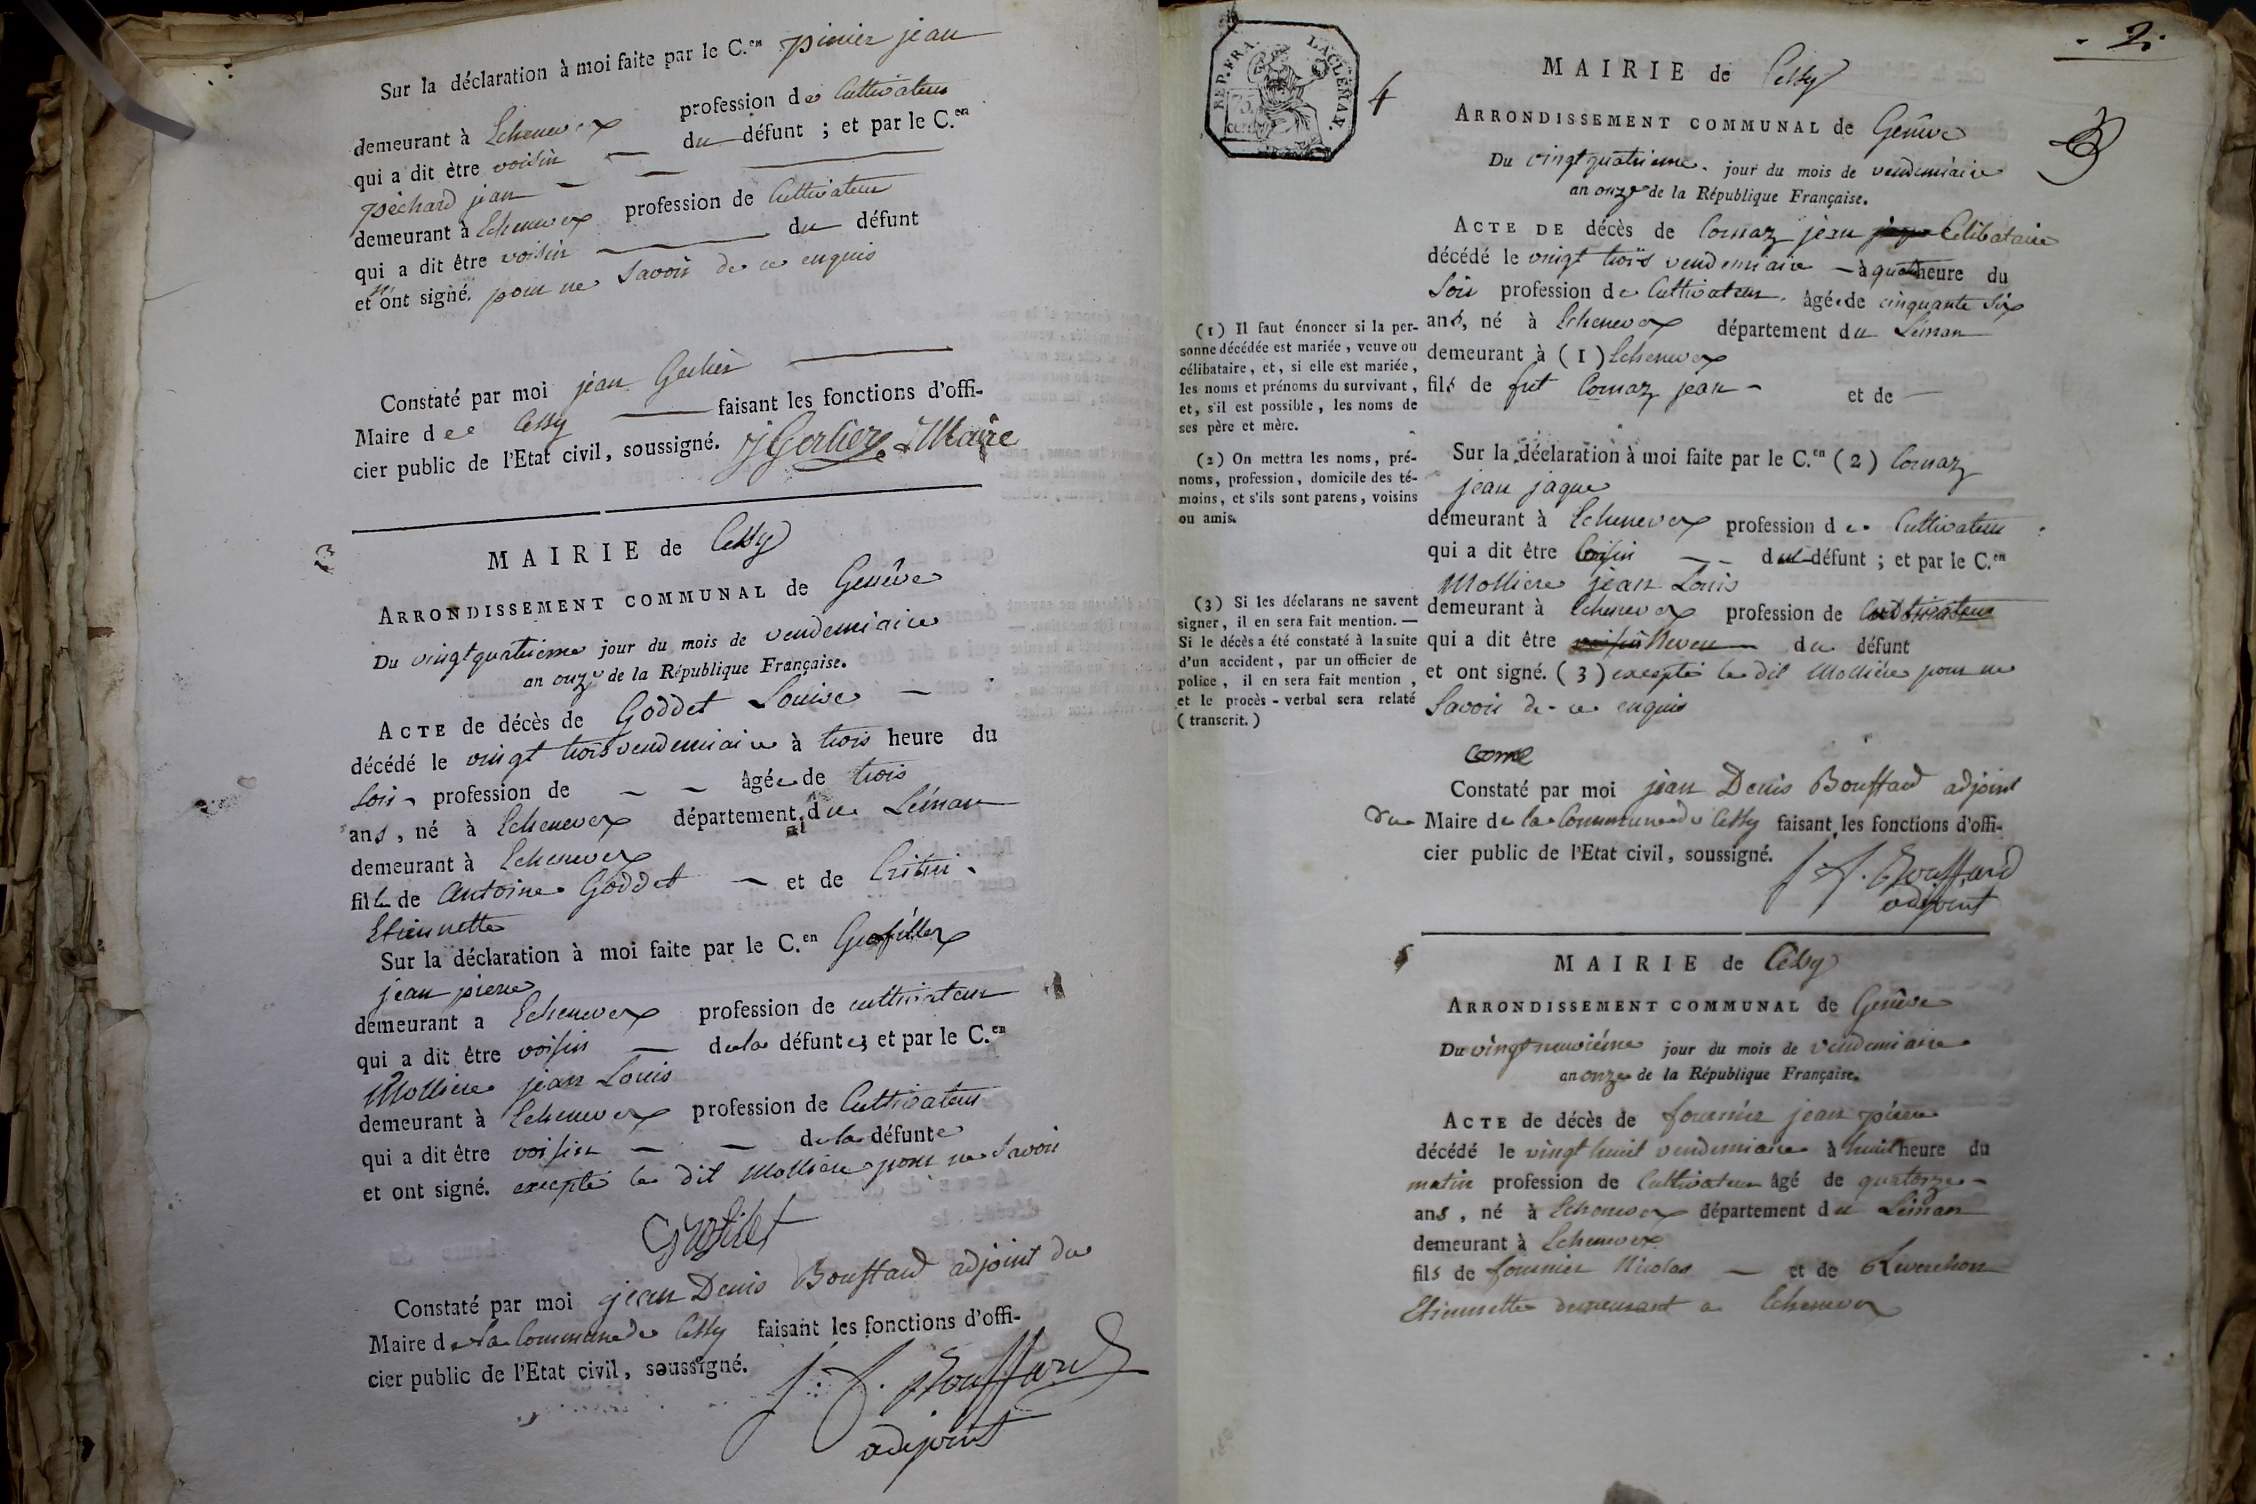 Sur la déclaration à moi faite par le C.en pinier jean
demeurant à Echenevex profession de Cultivateur
qui a dit être voisin — du défunt ; et par le C.en
péchard jean — —
demeurant à Echenevex profession de Cultivateur
qui a dit être voisin — du défunt
et n'ont signé. pour ne Savoir de ce enquis
Constaté par moi jean Gerlier —
Maire de Cessy — faisant les fonctions d'offi-
cier public de l'Etat civil, soussigné. j Gerlier Maire
3
MAIRIE de Cessy
ARRONDISSEMENT COMMUNAL de Genêve
Du vingtquatrieme jour du mois de vendemiaire
an onze de la République Française.
ACTE de décès de Goddet Louise —
décédé le vingt trois vendemiaire à trois heure du
soir profession de — — âgée de trois
ans, né à Echenevex département du Léman
demeurant à Echenevex
fille de antoine Goddet — et de
Etiennette
Sur la déclaration à moi faite par le C.en Grosfillex
jean pierre
demeurant a Echenevex profession de cultivateur
qui a dit être voisin — de la défunte ; et par le C.en
Molliere jean Louis
demeurant à Echenevex profession de Cultivateur
qui a dit être voisin — — de la défunte
et ont signé. excepté le dit Molliere pour ne Savoir
Grosfilet
Constaté par moi jean Denis Bouffard adjoint du
Maire de la Commune de Cessy faisant les fonctions d'offi-
cier public de l'Etat civil, soussigné.
J. D. Bouffard
adjoint
2.
REP. FRA.
75
cent
4
MAIRIE de Cessy
ARRONDISSEMENT COMMUNAL de Genêve
Du vingtquatrieme jour du mois de vendemiaire
an onze de la République Française.
ACTE DE décès de Cornaz jean Celibataire
décédé le vingt trois vendemiaire — à quatre heure du
Soir profession de Cultivateur âgée de cinquante six
ans, né à Echenevex département du Léman
demeurant à (1) Echenevex
fils de fut Cornaz jean — et de —
(1) Il faut énoncer si la per-
sonne décédée est mariée, veuve ou
célibataire, et, si elle est mariée,
les noms et prénoms du survivant,
et, s'il est possible, les noms de
ses père et mère.
(2) On mettra les noms, pré-
noms, profession, domicile des té-
moins, et s'ils sont parens, voisins
ou amis.
(3) Si les déclarans ne savent
signer, il en sera fait mention. —
Si le décès a été constaté à la suite
d'un accident, par un officier de
police, il en sera fait mention,
et le procès-verbal sera relaté
(transcrit.)
Sur la déclaration à moi faite par le C.en (2) Cornaz
jean jaque
demeurant à Echenevex profession de Cultivateur
qui a dit être — — du défunt ; et par le C.en
Molliere jean Louis
demeurant à Echenevex profession de Cultivateur
qui a dit être voisin Neveu — du défunt
et ont signé. (3) excepté le dit Molliére pour ne
Savoir de ce enquis
Constaté par moi jean Denis Bouffard adjoint
du Maire de la Commune de Cessy faisant les fonctions d'offi-
cier public de l'Etat civil, soussigné.
J. D. Bouffard
adjoint
5
MAIRIE de Cessy
ARRONDISSEMENT COMMUNAL de Genêve
Du vingtneuviéme jour du mois de vendemiaire
an onze de la République Française.
ACTE de décès de fournier jean pierre
décédé le vingt huit vendemiaire à huit heure du
matin profession de Cultivateur âgé de quatorze —
ans, né à Echenevex département du Léman
demeurant à Echenevex
fils de fournier Nicolas — et de Reverchon
Etiennette demeurant a Echenevex